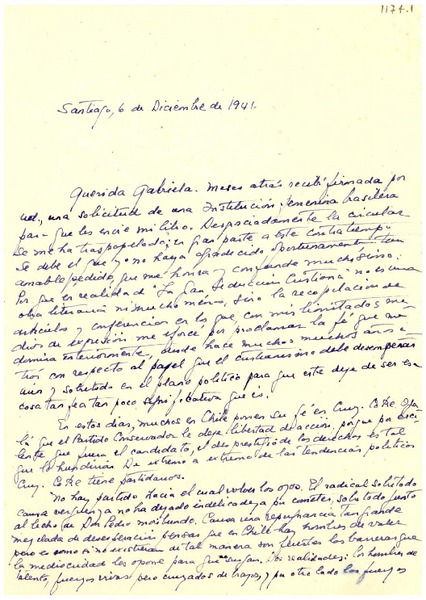 1174.1
Santiago, 6 de Diciembre de 1941.
Querida Gabriela. Meses atrás recibí firmada por
ud., una solicitud de una Institución femenina brasilera
para que les envíe mi libro. Desgraciadamente la circular
se me ha traspapelado; en gran parte a este contratiempo
se debe el que yo no haya agradecido oportunamente tan
amable pedido que me honra y confunde muchísimo:
Por que en realidad "La Gran Seducción Cristiana" no es una
obra literaria ni mucho menos, sino la recopilación de
artículos y conferencias en los que, con mis limitados me
dios de expresión me esforcé por proclamar la fé que me
domina interiormente, desde hace muchos muchos años a
trás con respecto al papel que el cristianismo debe desempeñar
y solutodo en el plano político para que este deje de ser esa
cosa tan fea tan poco significativa que es.
En estos días, muchos en Chile ponen su fé en Cruz Coke. Oja
lá que el Partido Conservador le deje libertad de acción, porque por exce
lente que fuera el candidato, el desprestigio de los derechos es tal
que lo hundirían. De extremo a extremo de las tendencias políticas
Cruz Coke tiene partidarios.
No hay partido hacia el cual volver los ojos. El radical solutodo
causa vergüenza no ha dejado indelicadeza por cometer, solutodo junto
al lecho de Don Pedro moribundo. Causa una repugnancia tan grande
mezclada de desesperación pensar que en Chile hay hombres de valer
pero es como si no existieran de tal manera son fuertes las barreras que
la mediocridad les opone para que surjan. Dos realidades: los hombres de
talento, fuerzas vivas pero cruzados de brazos, y por otro lado las fuerzas